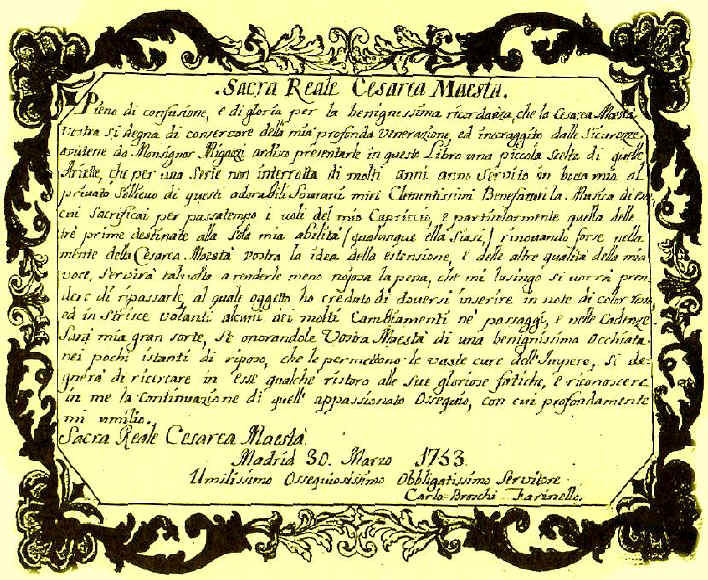 .Sacra Reale Cesarea Maestà.
Pieno di confusione, e di gloria per la benignissima ricordanza, che la Cesarea Maestà
vostra si degna di conservare della mia profonda venerazione, ed incoraggito dalle Sicurezze
avutene da Monsignor Migazzi ardisco presentarle in questo Libro una piccola scelta di quelle
Ariette, che per una Serie non interrotta di molti anni anno Servito in bocca mia al
privato Sollievo di questi adorabili Sourani miei Clementissimi Benefattori. La Musica di
cui Sacrificai per passatempo i voli del mio Capriccio, e particolarmente quella delle
trè prime destinate alla Sola mia abilità (qualunque ella siasi,) rinovando forse nella
mente della Cesarea Maestà vostra la idea della estensione, e delle altre qualità della mia
voce, Servirà talvolta a renderle meno nojosa la pena, che mi lusingo si vorrà pren:
dere di ripassarle, al quale oggetto ho creduto di doversi inserire in note di color
ed in Strisce volanti alcuni dei molti Cambiamenti ne' passaggi, e nelle Cadenze.
Sarà mia gran sorte, Se onorandole Vostra Maestà di una benignissima Occhiata
nei pochi istanti di riposo, che le permettono le vaste cure dell'Impero, Si de:
gnerà di ricercare in esse qualche ristoro alle Sue gloriose fatiche, e riconoscere
in me la Continuazione di quell' appassionato Ossequio, con cui profondamente
mi umilio.
Sacra Reale Cesarea Maestà
Madrid 30. Marzo 1753.
Umilissimo Ossequiosissimo Obbligatissimo Servitore
Carlo Broschi Farinello.